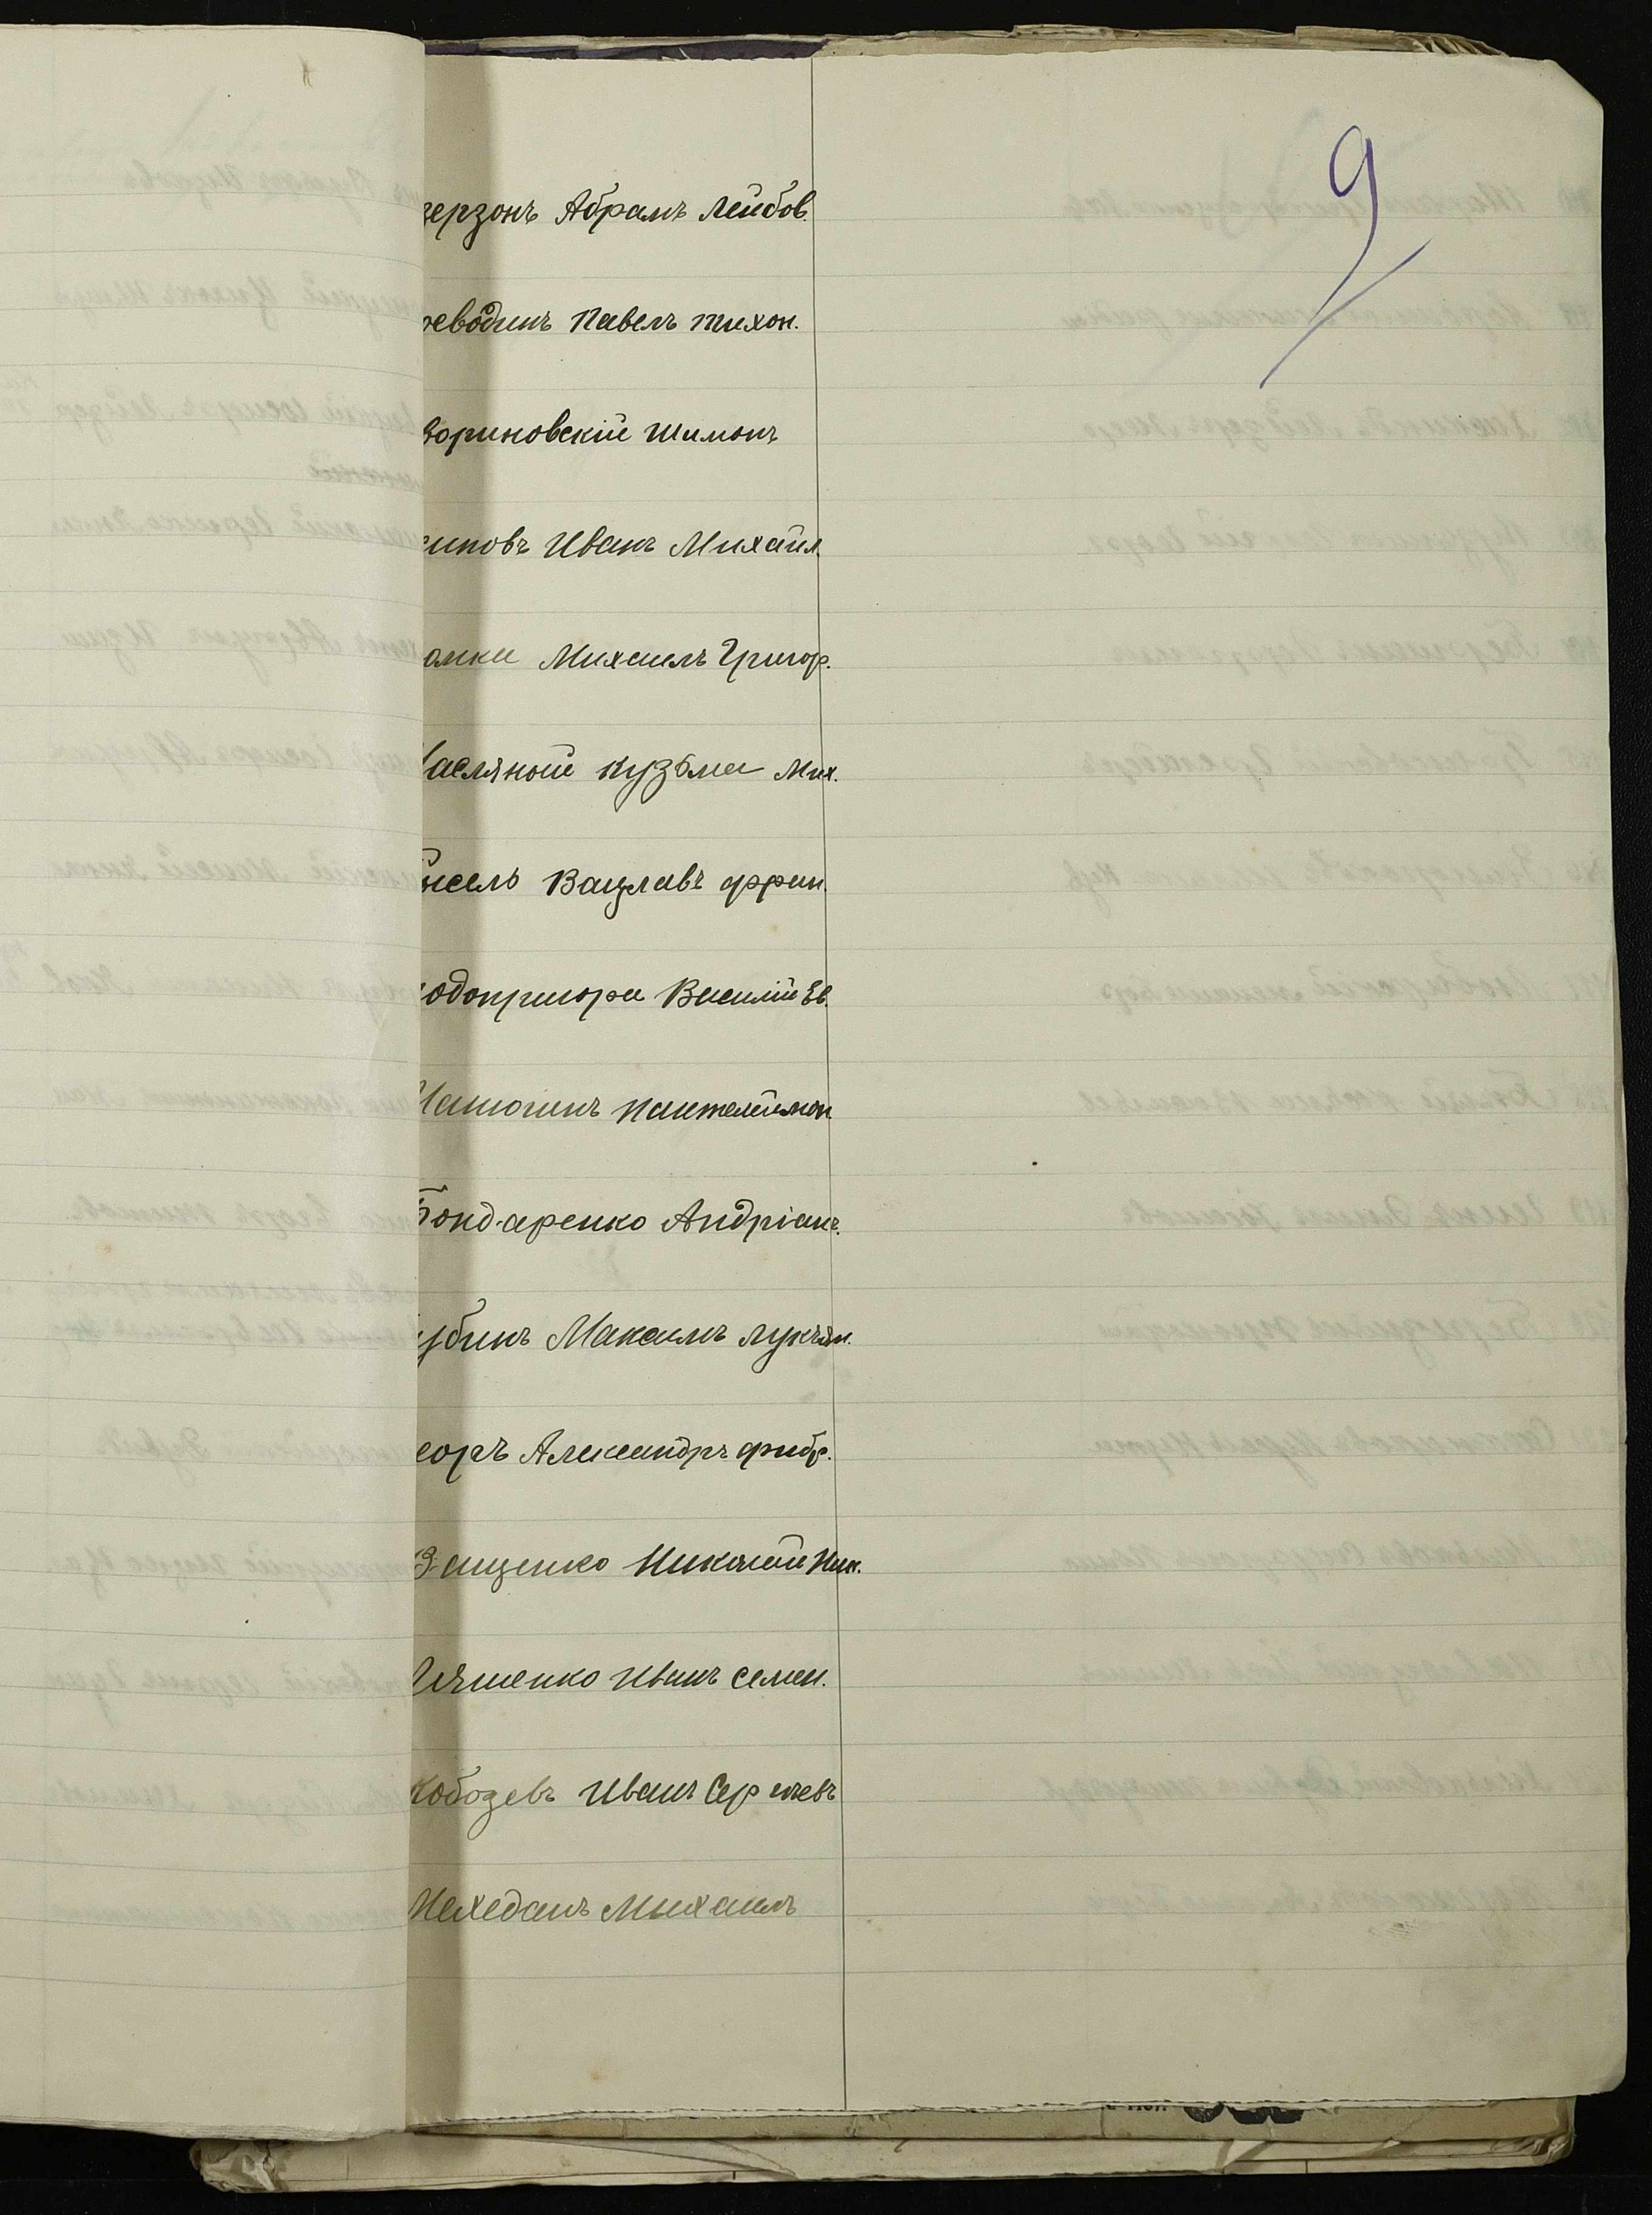 9
герзонъ Абрамъ Лейбов.
реводинъ Павелъ Тихон.
вориновскій Шимонъ
сиповъ Иванъ Михайл.
омка Михаилъ Григор.
Масляной Кузьма Мих.
нсель Вацлавъ Фран.
одопригора Василій Ев.
Матюгинъ Пантелеймон
Бондаренко Андріанъ.
убинъ Максимъ Лукъян.
еоръ Александръ Фидр.
ащенко Николай Ник.
Ивашенко Иванъ Семен.
Кобозевъ Иванъ Сергѣевъ
Нехеданъ Михаилъ